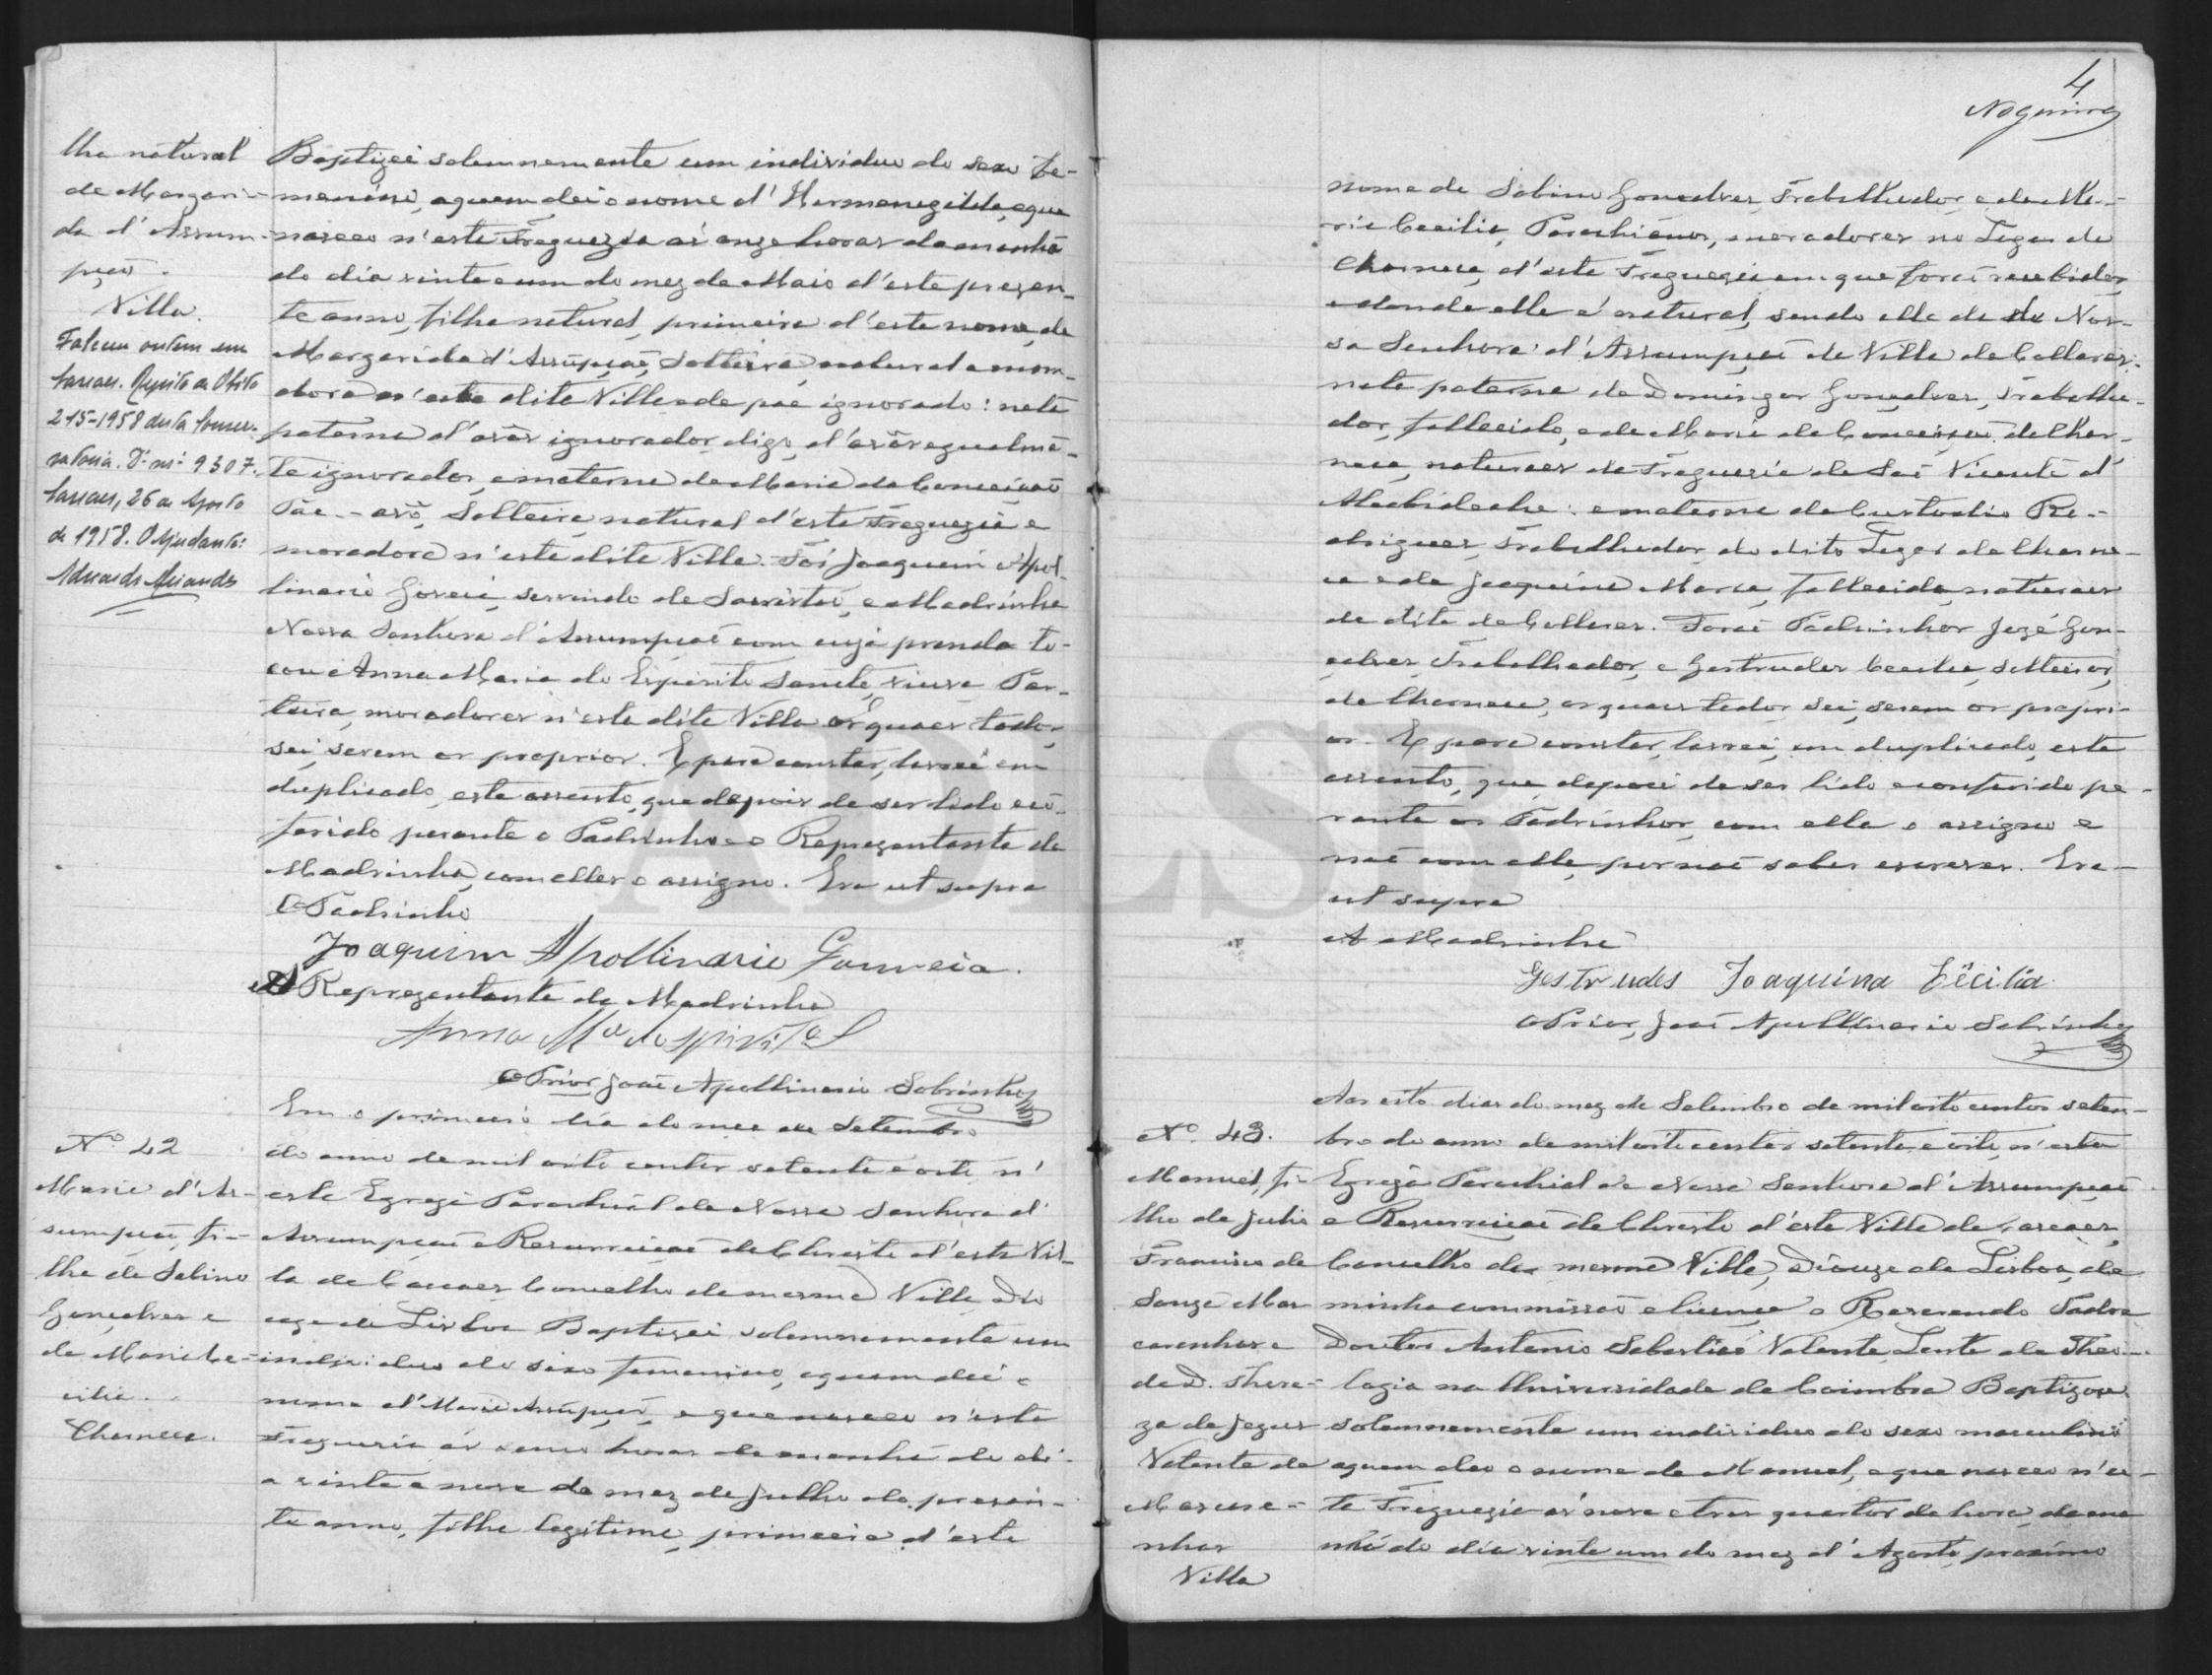 lha natural
de Margari-
da d'Assum-
pção.
Villa.
Faleceu ontem em
Cascaes. Registo de Obito
215-1958 desta Conser-
vatoria. D. nº 9307.
Cascaes, 26 de Agosto
de 1958. O Ajudante:
Baptizei solemnemente um individuo do sexo fe-
menino, a quem dei o nome d'Hermenegilda, e que
nasceo n'esta Freguezia ás onze horas da manhã
do dia vinte e um do mez de Maio d'este prezen-
te anno, filha natural, primeira d'este nome, de
Margarida d'Assūpção, Solteira, natural e mora-
dora n'esta dita Villa e de pae ignorado: neta
paterna d'avós ignorados digo, d'avós egualmē-
te ignorados, e materna de Maria da Conceição
solteira natural d'esta Freguezia e
moradora n'esta dita Villa. Foi Joaquim Apol-
linario Gouveia, servindo de Sacristão, e Madrinha
Nossa Senhora d'Assumpção com cuja prenda to-
cou Anna Maria do Espirito Santo, viuva Par-
teira, moradores n'esta dita Villa os quaes todos
sei, serem os proprios. E para constar, lavrei em
duplicado, este assento, que depois de ser lido e cō-
ferido perante o Padrinho e o Reprezentante da
Madrinha, com elles o assigno. Era ut supra
O Padrinho
Joaquim Apollinario Gouveia.
A Reprezentante da Madrinha
Anna Mª do Spirito S
O Prior José Apollinario Sobrinho
Nº 42
Maria d'As-
sumpção, fi-
lha de Sabino
Gonçalves e
de Maria Ce-
cilia.
Charneca.
Em o primeiro dia do mez de Setembro
do anno de mil oito centos setenta e oito n'
esta Egreja Parochial de Nossa Senhora d'
Assumpção e Resurreição de Christo d'esta Vil-
la de Cascaes Concelho da mesma Villa, Dio
ceze de Lisboa Baptizei solemnemente um
individuo do sexo femenino, a quem dei o
nome d'Maria Assūpção, e que nasceo n'esta
Freguezia ás horas da manhã do di-
a vinte e nove do mez de Julho do presen-
te anno, filha legitima, primeira d'este
4
Nogueira
nome de Sabino Gonçalves, Trabalhador, e de Ma-
ria Cecilia, Parochianos, moradores no Logar da
Charneca, d'esta Freguezia em que forão recebidos,
e donde elle é natural, sendo ella da de Nos-
sa Senhora d'Assumpção da Villa de Collares:
neta paterna de Domingos Gonçalves, Trabalha-
dor, fallecido, e de Maria da Conceição da Char-
neca, naturaes da Freguezia de São Vicente d'
Alcabideche: e materna de Custodio Ro-
drigues, Trabalhador, do dito Logar da Charne-
ca e de Joaquina Maria, fallecida, naturaes
da dita de Collares. Forão Padrinhos José Gon-
çalves, Trabalhador, e Gertrudes Cecilia, solteiros,
da Charneca, os quaes todos sei, serem os propri-
os. E para constar, lavrei, em duplicado, este
assento, que depois de ser lido e conferido pe-
rante os Padrinhos, com ella o assigno e
não com elle, por não saber escrever. Era
ut supra
A Madrinha
Gestrudes Joaquina Cecilia
O Prior, José Apollinario Sobrinho
Nº 43.
Manuel, fi-
lho de Julio
Francisco de
Souza Mas
carenhas e
de D. There-
za de Jezus
Valente de
Mascare-
nhas
Villa
Aos oito dias do mez de Setembro de mil oito centos seten-
bro do anno de mil oito centos setenta e oito, n'esta
Egreja Parochial de Nossa Senhora d'Assumpção
e Resurreição de Christo d'esta Villa de Cascaes,
Concelho da mesma Villa, Diouze de Lisboa, de
minha commissão e licença o Reverendo Padre
Doutor Antonio Sebastião Valente, Lente de Theo-
logia na Universidade de Coimbra Baptizou
solemnemente um individuo do sexo masculino
a quem deo o nome de Manuel, e que nasceo n'es-
ta Freguezia ás nove e tres quartos de hora, da ma
nhã do dia vinte um do mez d'Agosto proximo